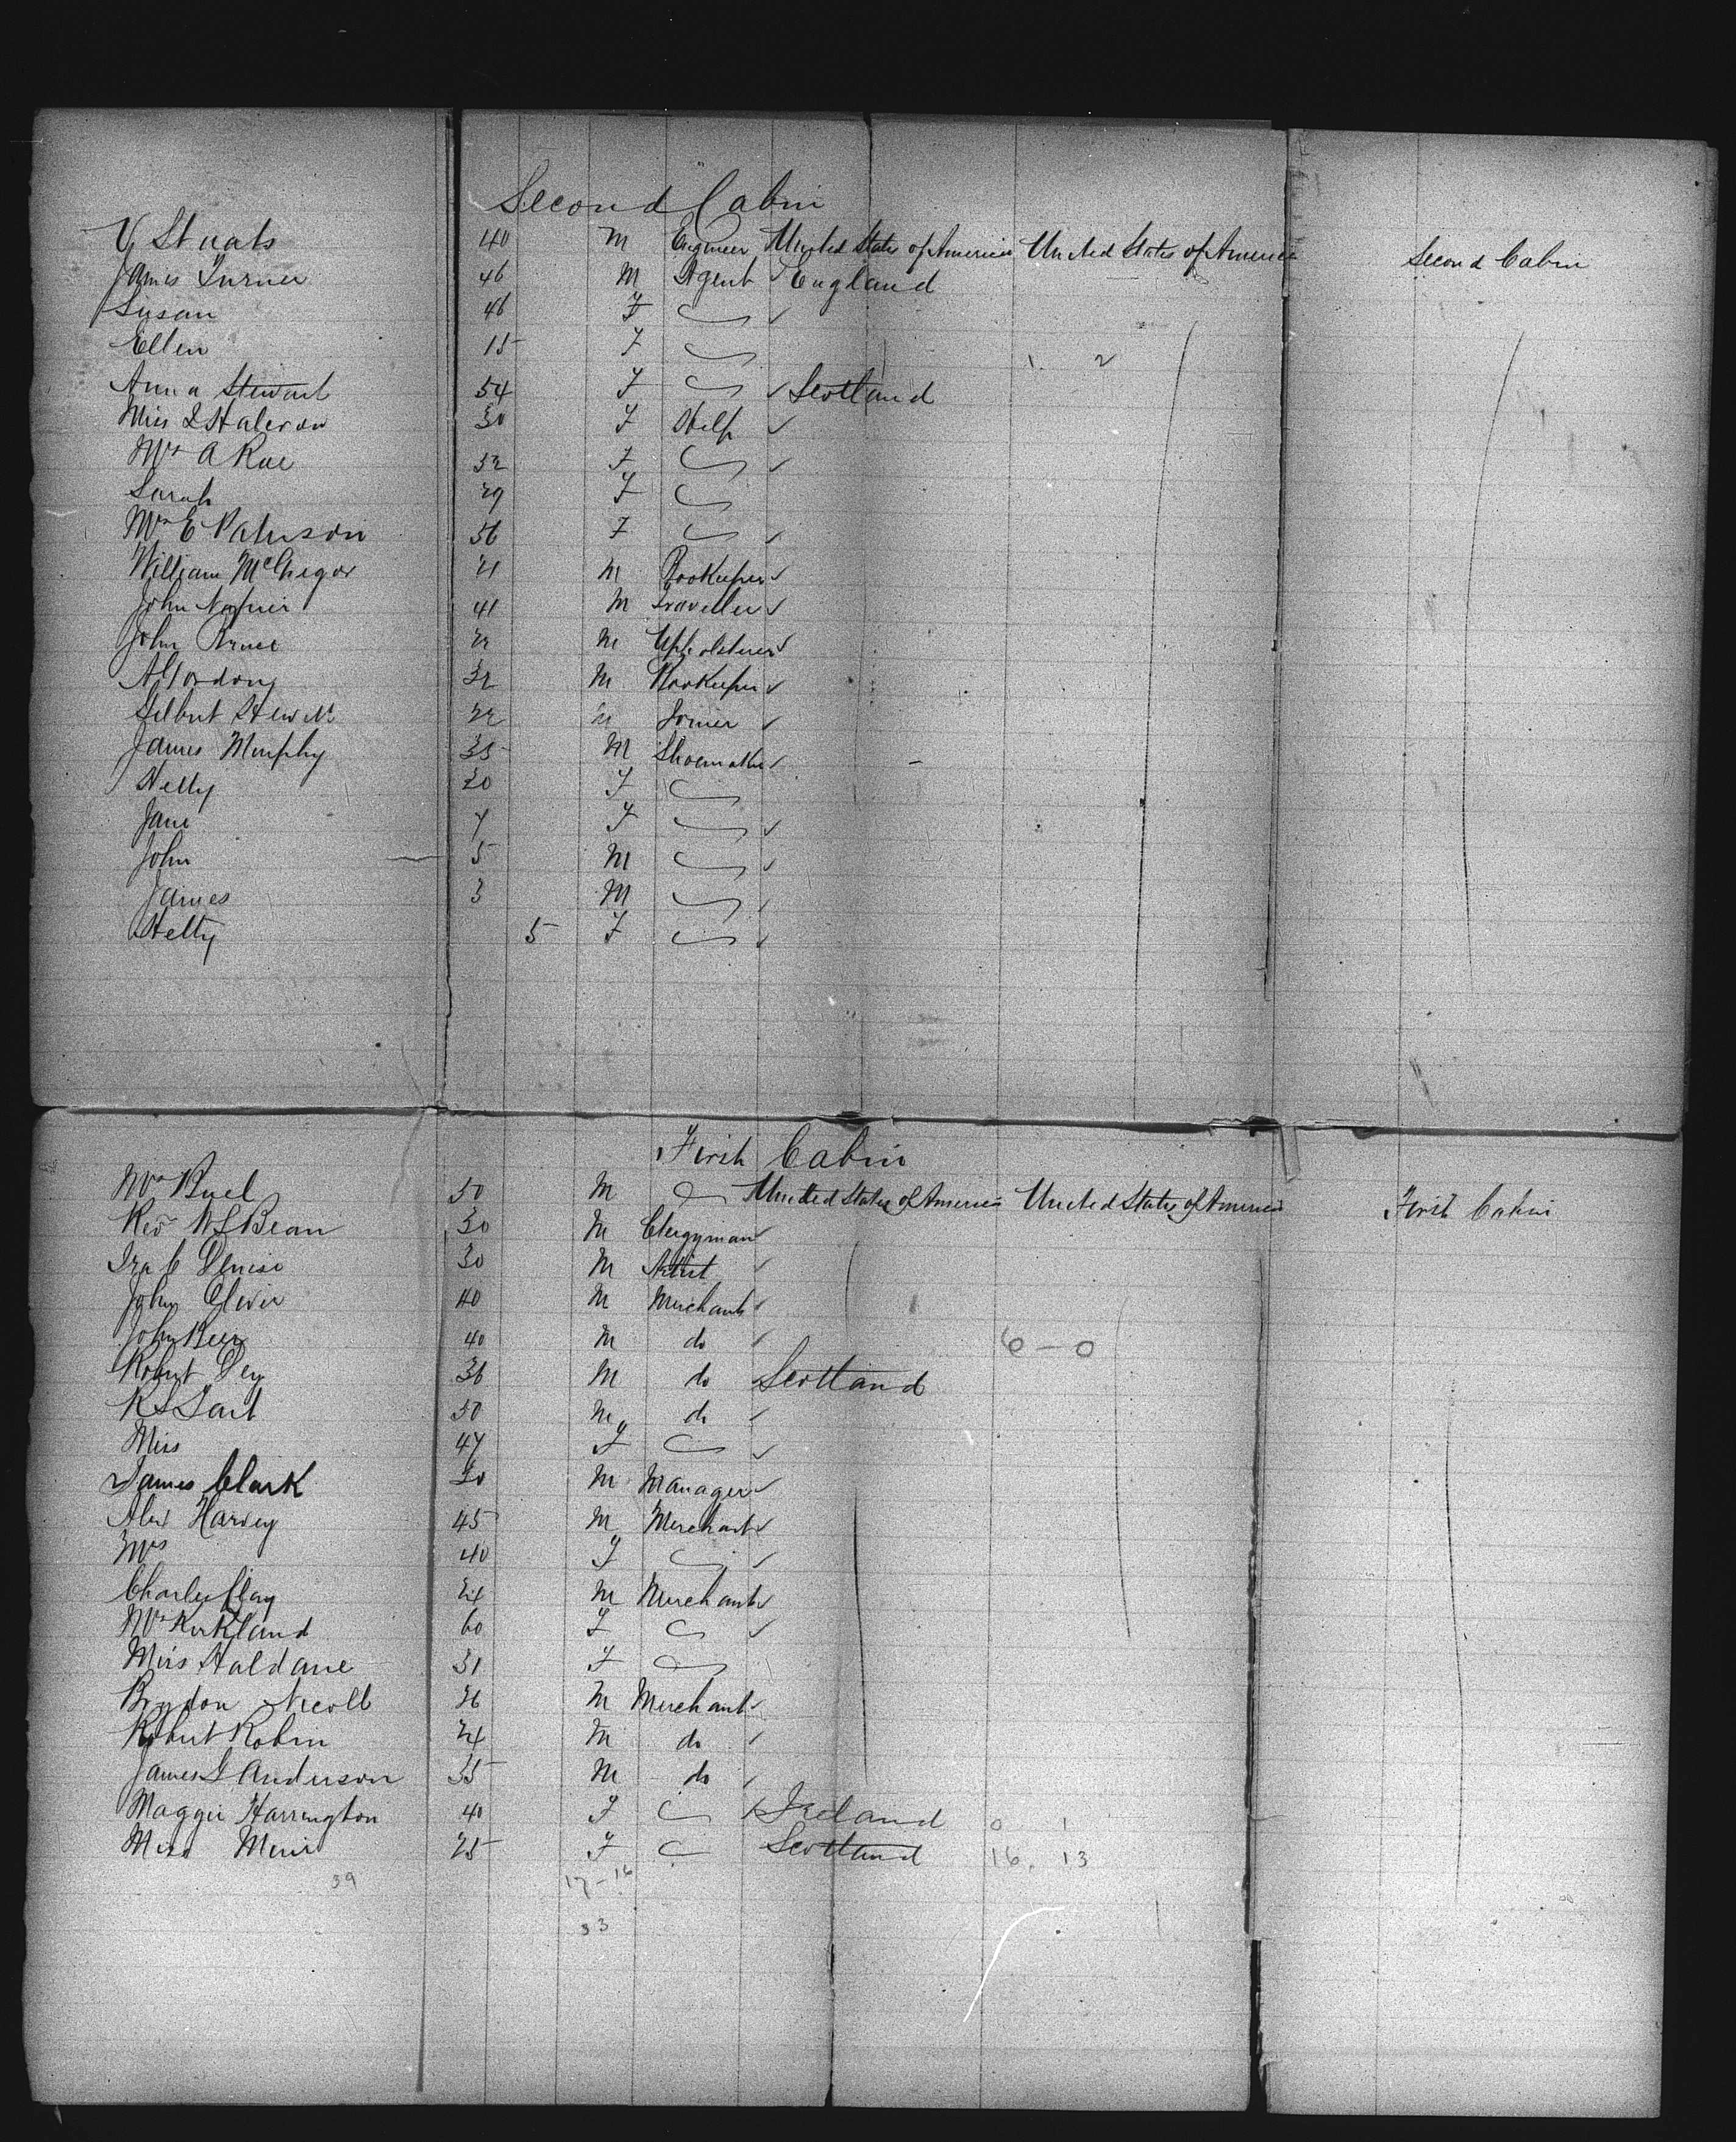 Second Cabin
V Stuats 40 M Engineer United States of America United States of America Second Cabin
James Turner 46 M Agent England
Susan 46 F
Ellen 15 F 1 2
Anna Stewart 54 F Scotland
Miss I Halcrow 30 F Help
Mrs A Rae 32 F
Sarah 29 F
Mrs E Paterson 56 F
William McGregor 21 M Bookeeper
John Napier 41 M Traveller
John Bruce 22 M Upholsterer
A Gordong 32 M Bookeeper
Gilbert 22 M Joiner
James Murphy 35 M Shoemaker
Hetty 30 F
Jane 7 F
John 5 M
James 3 M
Hetty 5 F
First Cabin
Mr Buel 50 M United States of America United States of America First Cabin
Rev W S Bean 30 M Clergyman
Ira C Denise 30 M Artist
John Oliver 40 M Merchant
John Beer 40 M do 6 - 0
Robert Dey 36 M do Scotland
R S Tait 50 M do
Miss 47 F
James Clark 30 M Manager
Alex Harvey 45 M Merchant
Mrs 40 F
Charles Clay 24 M Merchant
Mrs Kirkland 60 F
Miss Haldane 31 F
Brydon Nicoll 26 M Merchant
Robert Robin 24 M do
James G Anderson 35 M do
Maggie Harrington 40 F Ireland 0 1
Miss 25 F Scotland 16. 13
39 17 - 16
33